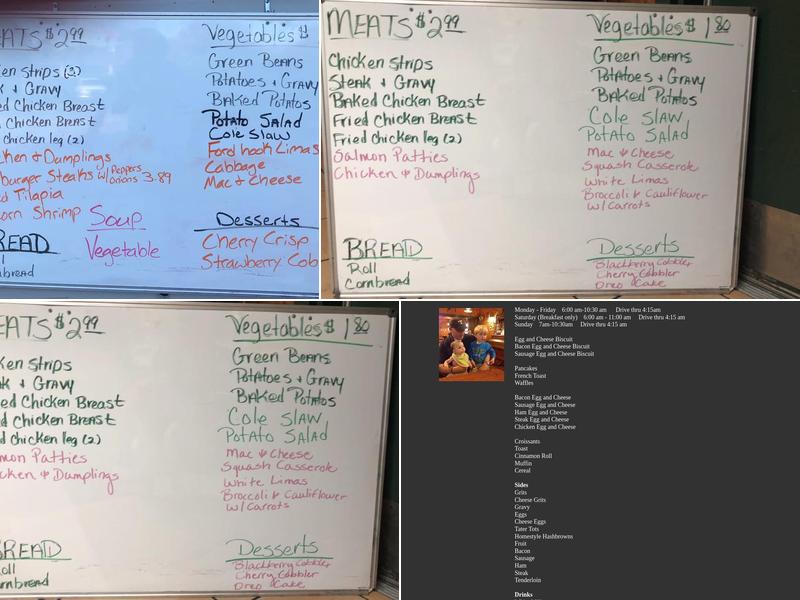 EATS $2.99
Vegetables $
en Strips (3)
Green Beans
k + Gravy
Potatoes + Gravy
ed Chicken Breast
Baked Potatos
Chicken Breast
Potato Salad
chicken leg (2)
Cole Slaw
ken + Dumplings
Ford hook Limas
burger Steaks w/ Peppers Onions 3.89
Cabbage
d Tilapia
Mac + Cheese
orn Shrimp
Soup
Desserts
READ
Vegetable
Cherry Crisp
l
Strawberry Cob
nbread
MEATS $2.99
Vegetables $1.80
Chicken Strips
Green Beans
Steak + Gravy
Potatoes + Gravy
Baked Chicken Breast
Baked Potatos
Fried Chicken Breast
Cole Slaw
Fried chicken leg (2)
Potato Salad
Salmon Patties
Mac + Cheese
Chicken + Dumplings
Squash Casserole
White Limas
Broccoli + Cauliflower
w/ Carrots
BREAD
Desserts
Roll
Blackberry Cobbler
Cornbread
Cherry Cobbler
Oreo Cake
EATS $2.99
Vegetables $1.80
ken Strips
Green Beans
k + Gravy
Potatoes + Gravy
ed Chicken Breast
Baked Potatos
d Chicken Breast
Cole Slaw
d chicken leg (2)
Potato Salad
mon Patties
Mac + Cheese
cken + Dumplings
Squash Casserole
White Limas
Broccoli + Cauliflower
w/ Carrots
READ
Desserts
oll
Blackberry Cobbler
ornbread
Cherry Cobbler
Oreo Cake
Monday - Friday 6:00 am-10:30 am Drive thru 4:15am
Saturday (Breakfast only) 6:00 am - 11:00 am Drive thru 4:15 am
Sunday 7am-10:30am Drive thru 4:15 am
Egg and Cheese Biscuit
Bacon Egg and Cheese Biscuit
Sausage Egg and Cheese Biscuit
Pancakes
French Toast
Waffles
Bacon Egg and Cheese
Sausage Egg and Cheese
Ham Egg and Cheese
Steak Egg and Cheese
Chicken Egg and Cheese
Croissants
Toast
Cinnamon Roll
Muffin
Cereal
Sides
Grits
Cheese Grits
Gravy
Eggs
Cheese Eggs
Tater Tots
Homestyle Hashbrowns
Fruit
Bacon
Sausage
Ham
Steak
Tenderloin
Drinks